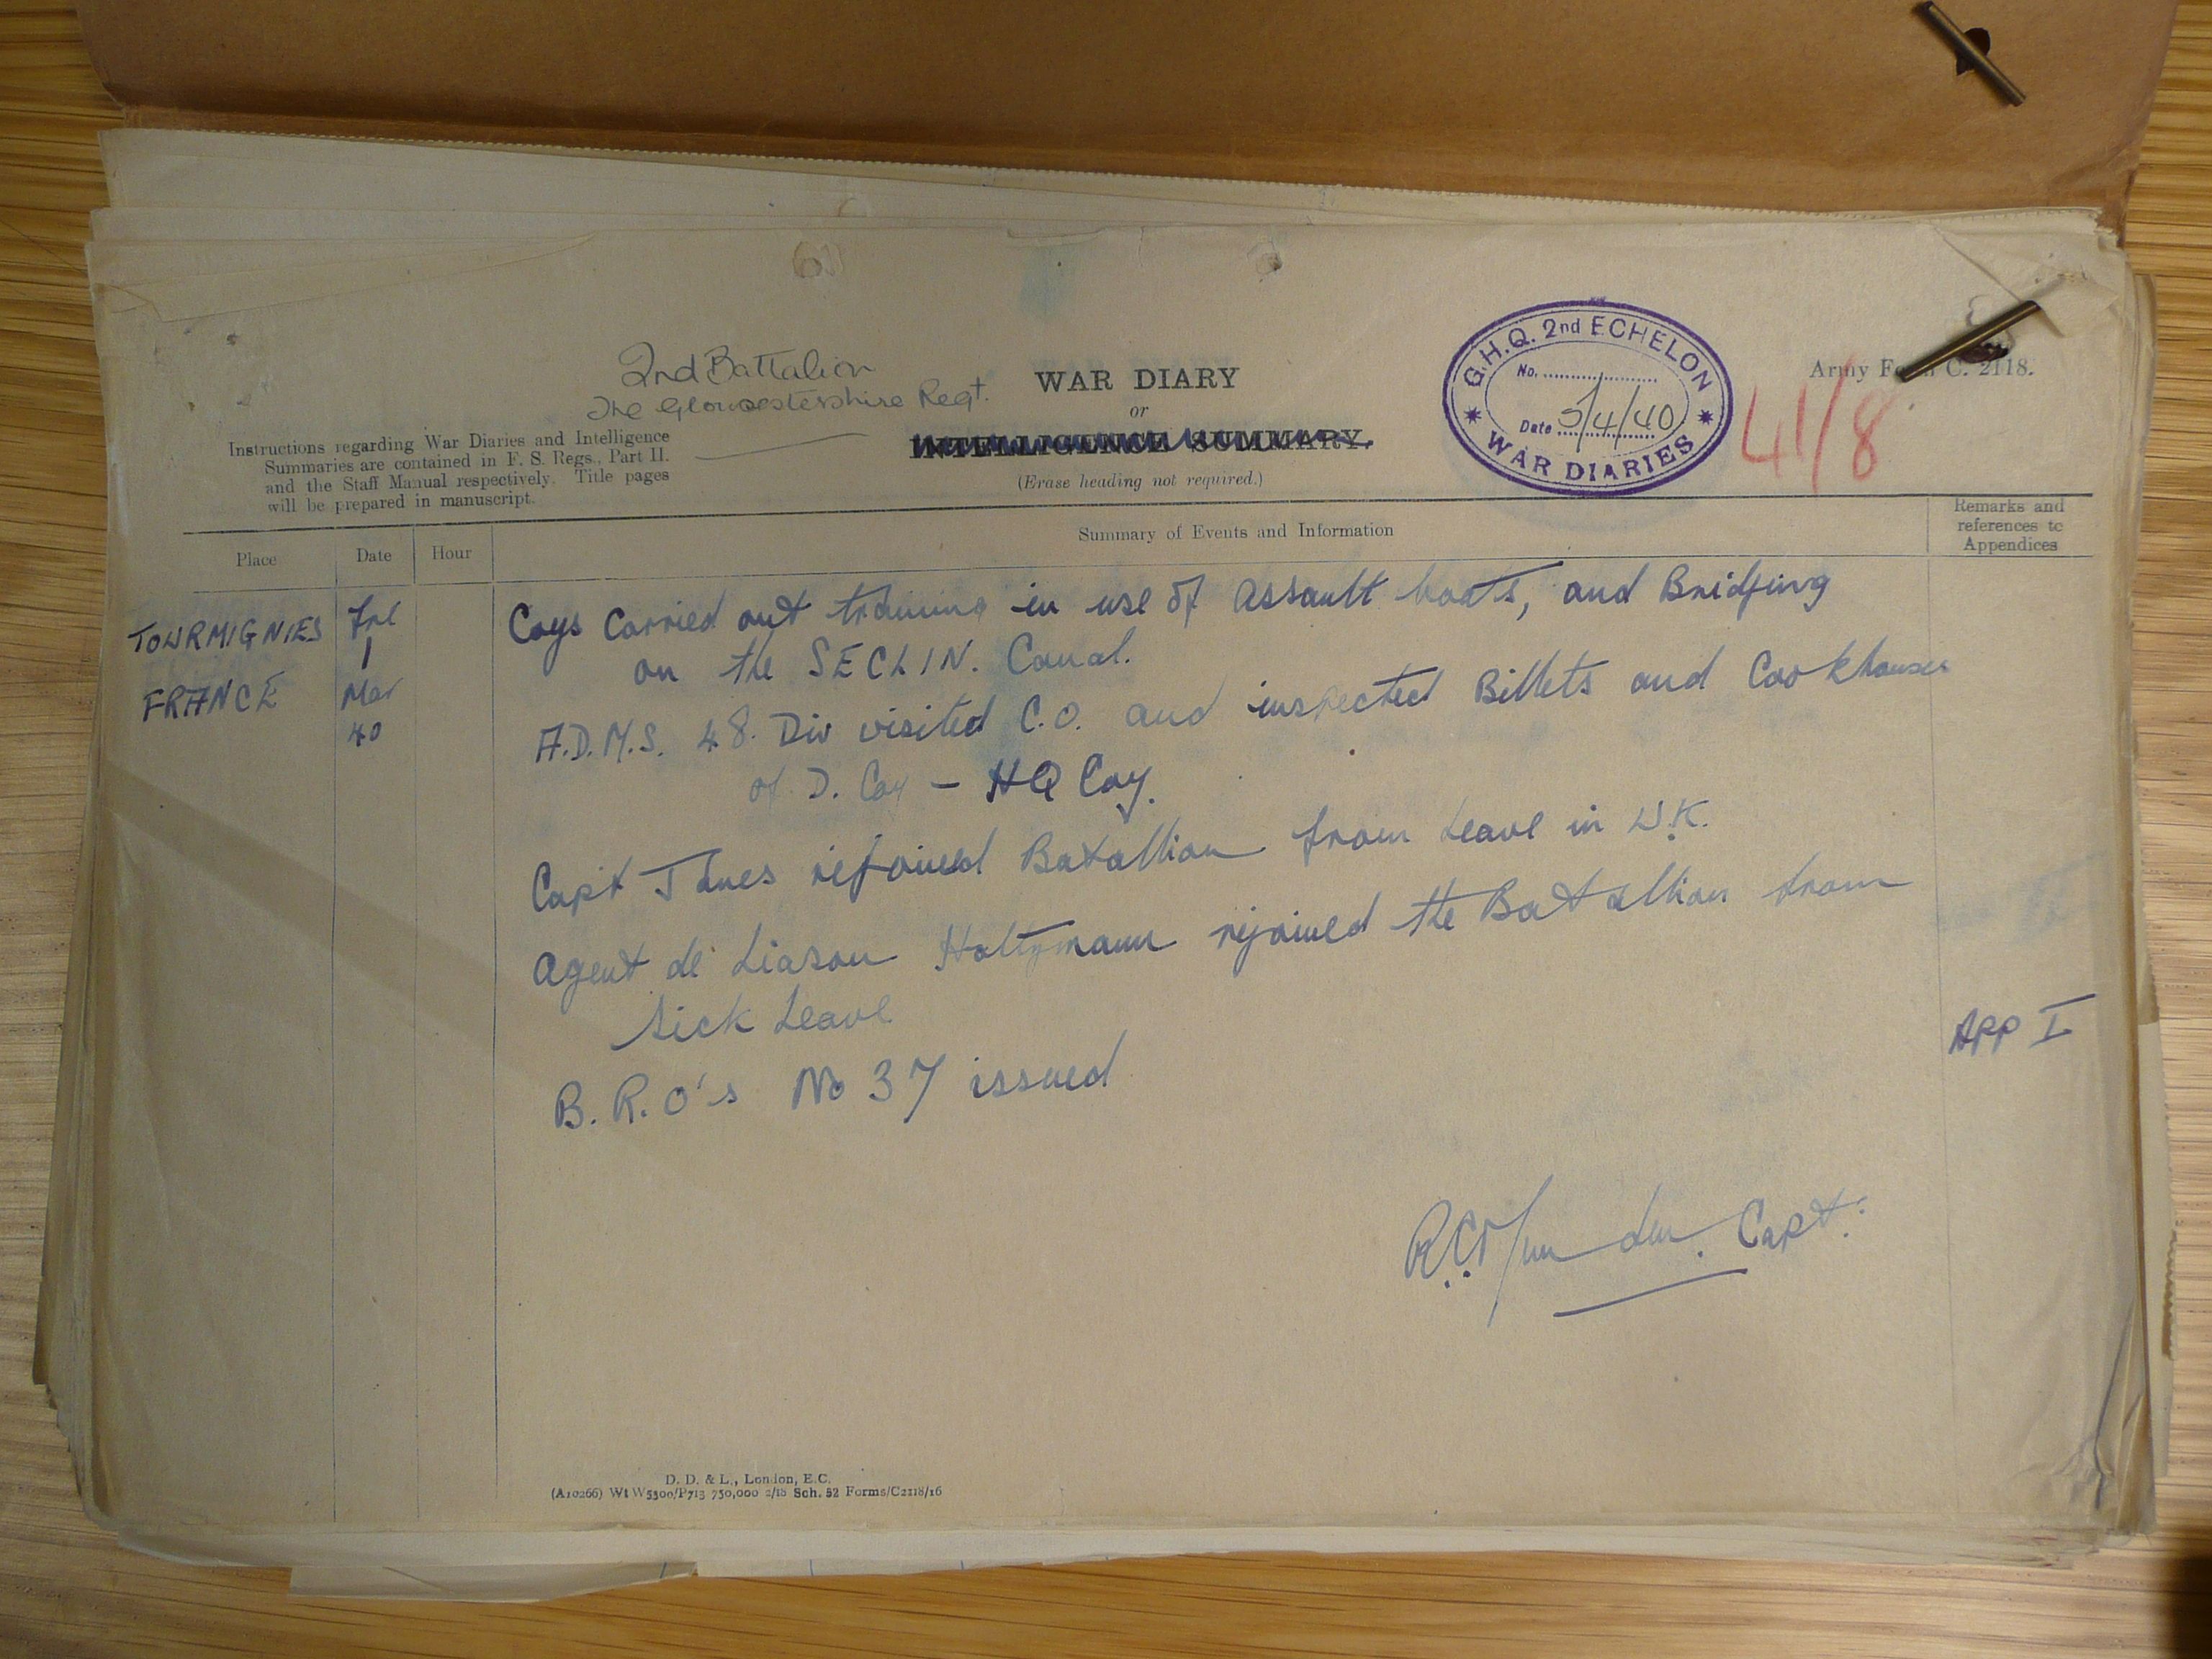 2nd Battalion
The Gloucestershire Regt.
WAR DIARY
or
INTELLIGENCE SUMMARY.
(Erase heading not required.)
Army Form C. 2118.
G.H.Q. 2nd ECHELON
No.
Date 5/4/40
WAR DIARIES
41/8
Instructions regarding War Diaries and Intelligence
Summaries are contained in F. S. Regs., Part II.
and the Staff Manual respectively. Title pages
will be prepared in manuscript.
Place
Date
Hour
Summary of Events and Information
Remarks and
references to
Appendices
TOURMIGNIES
FRANCE
Fri
1
Mar
40
Coys Carried out training in use of Assault boats, and Bridging
on the SECLIN. Canal.
A.D.M.S. 48. Div visited C.O. and inspected Billets and Cookhouses
of D. Coy – HQ Coy.
Capt rejoined Batallion from Leave in U.K.
Agent de Liason Holtzmann rejoined the Batallion from
Sick Leave
B.R.O's No 37 issued
APP I
Capt.
D. D. & L., London, E.C.
(A10266) Wt W5300/P713 750,000 2/18 Sch. 52 Forms/C2118/16